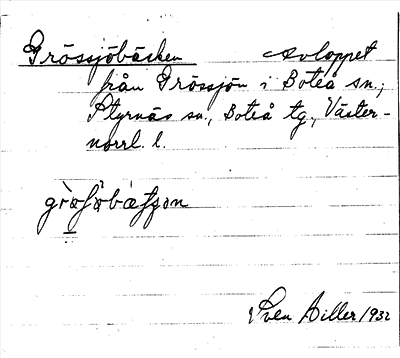 Grössjöbäcken avloppet
från Grössjön i Boteå sn;
Styrnäs sn., Boteå tg., Väster-
norrl. l.
Sven Hiller 1932